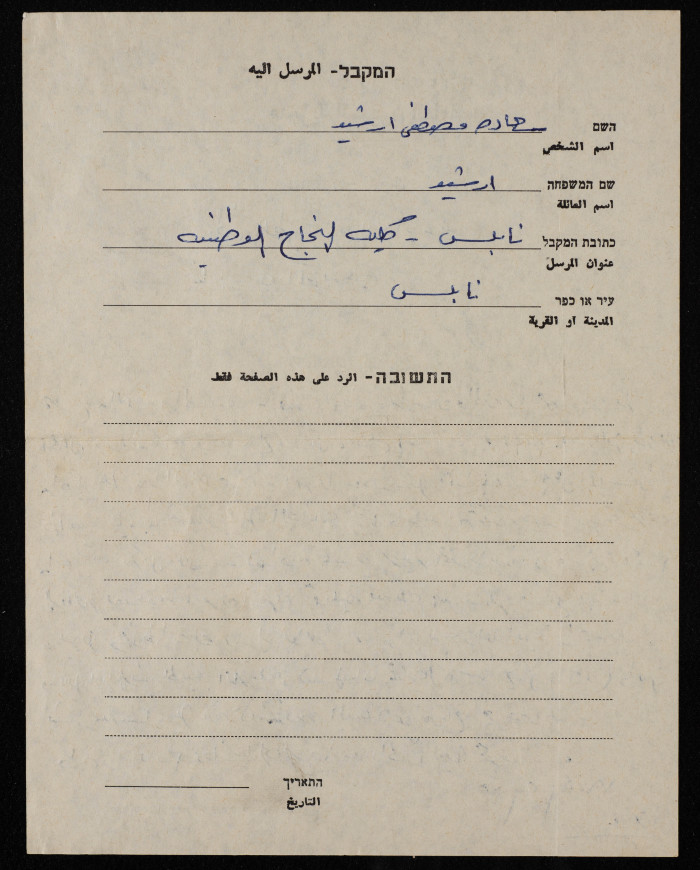 המקבל - المرسل اليه
השם حماده مصطفى ارشيد
اسم الشخص
שם המשפחה ارشيد
اسم العائلة
כתובת המקבל نابلس - كلية النجاح الوطنية
عنوان المرسل
עיר או כפר نابلس
المدينة او القرية
התשובה - الرد على هذه الصفحة فقط
התאריך
التاريخ